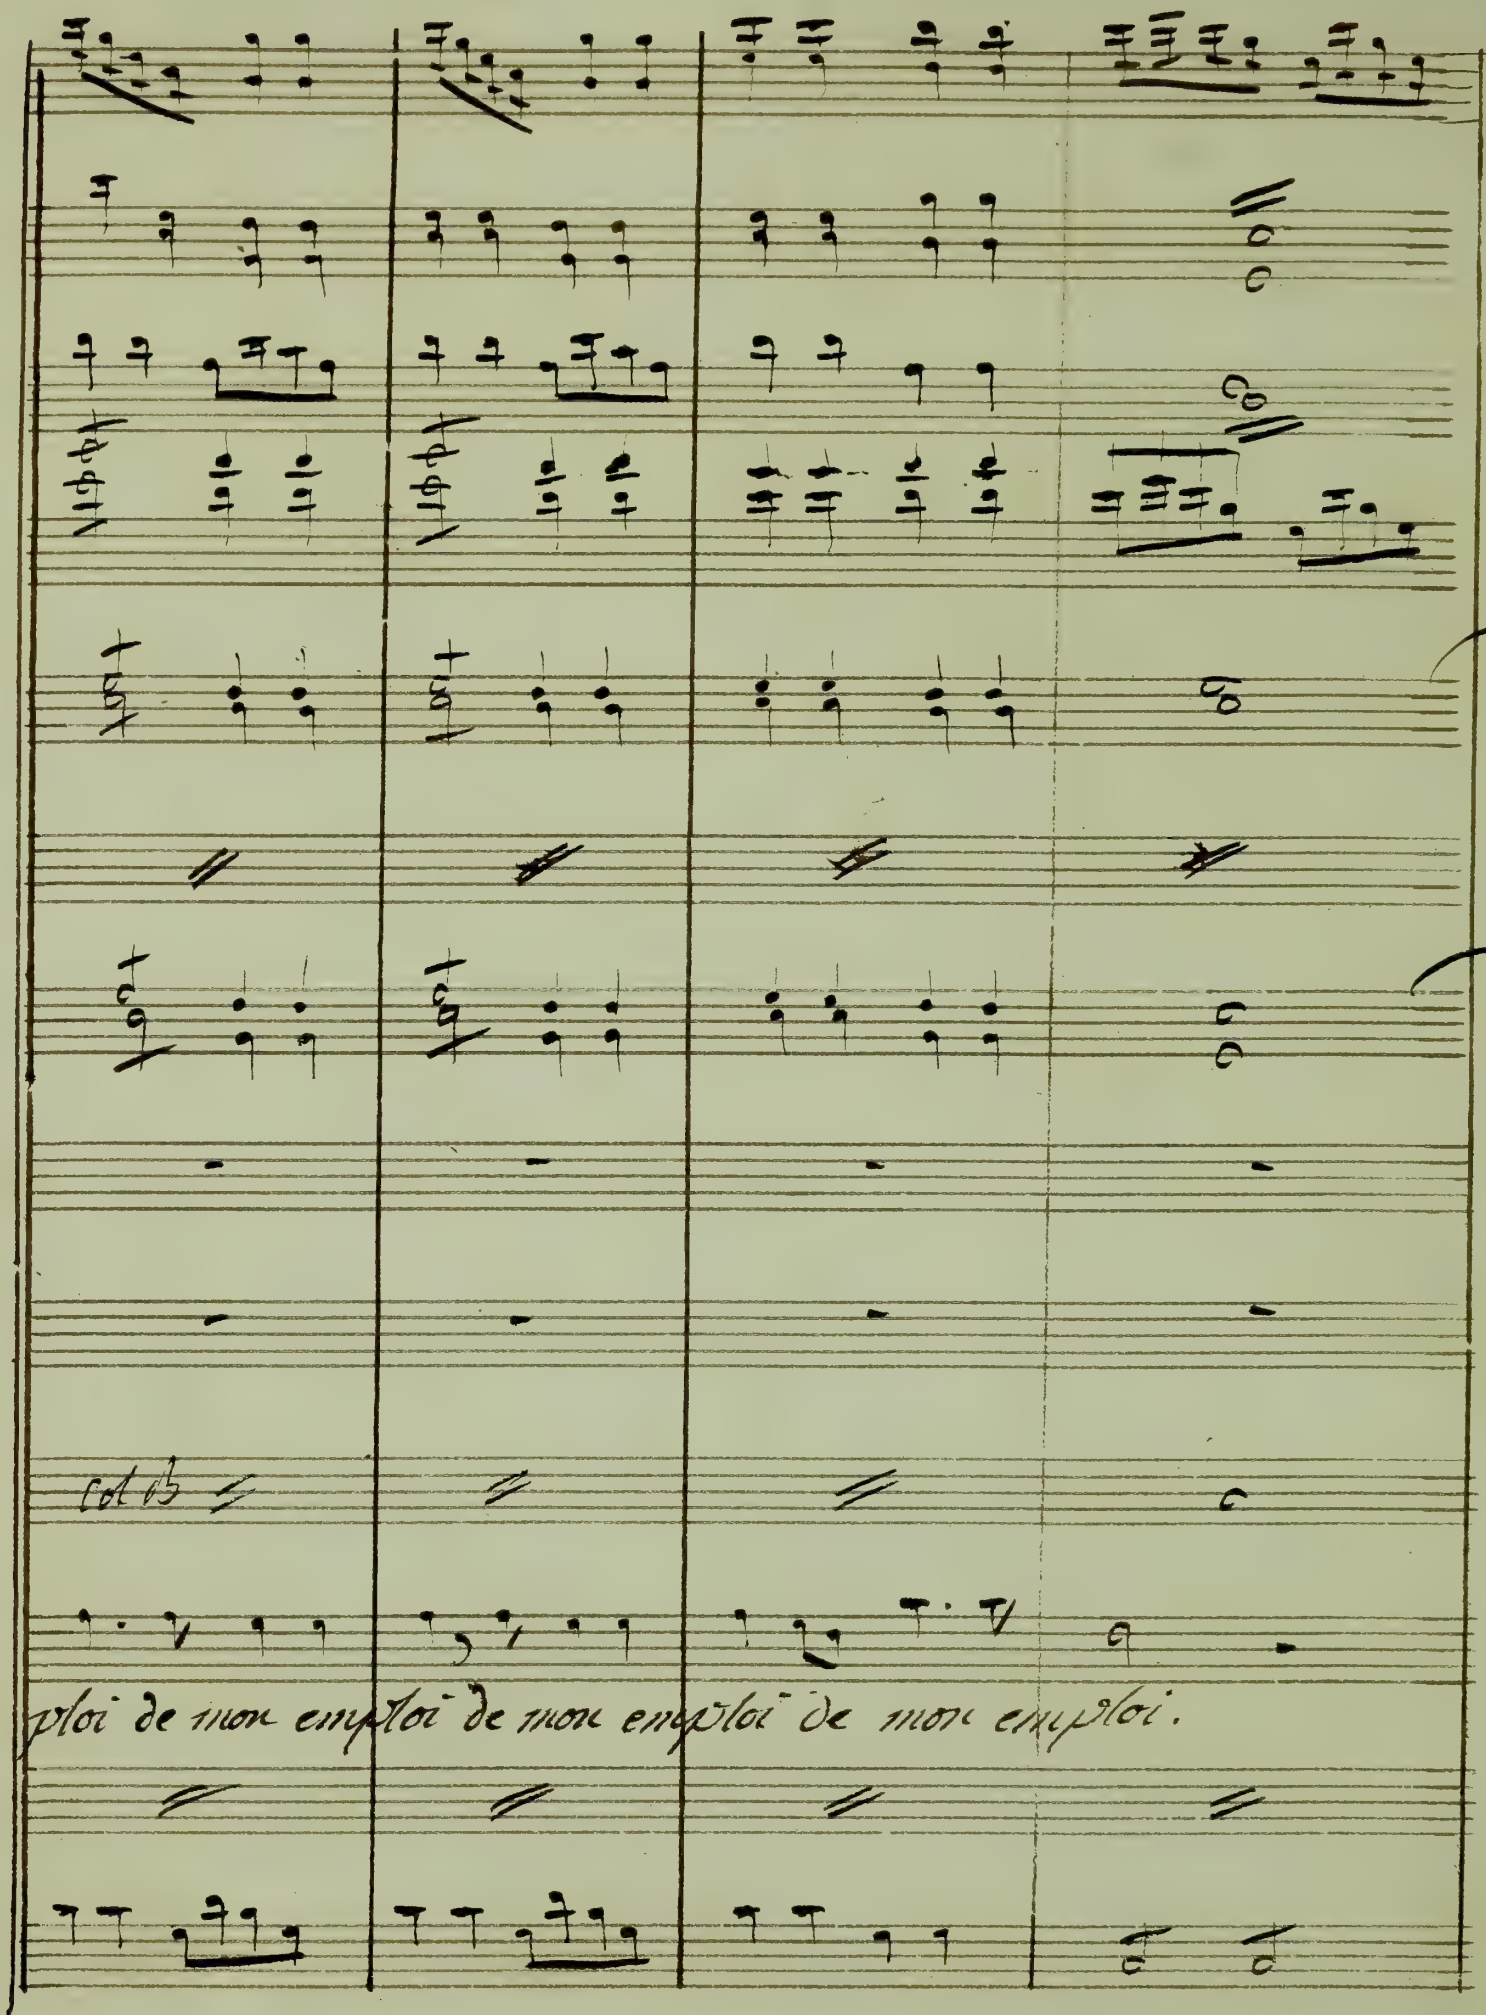 col B
ploi de mon emploi de mon emploi de mon emploi.